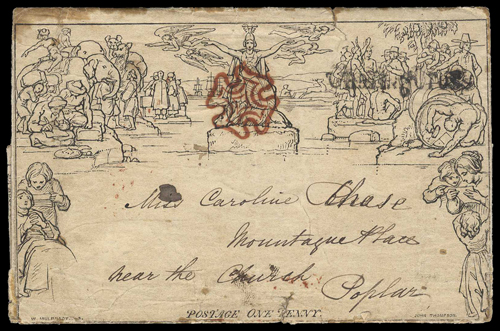 Miss Caroline Chase
Mountague Place
near the Church
Poplar
POSTAGE ONE PENNY.
W. MULREADY, R.A.
JOHN THOMPSON